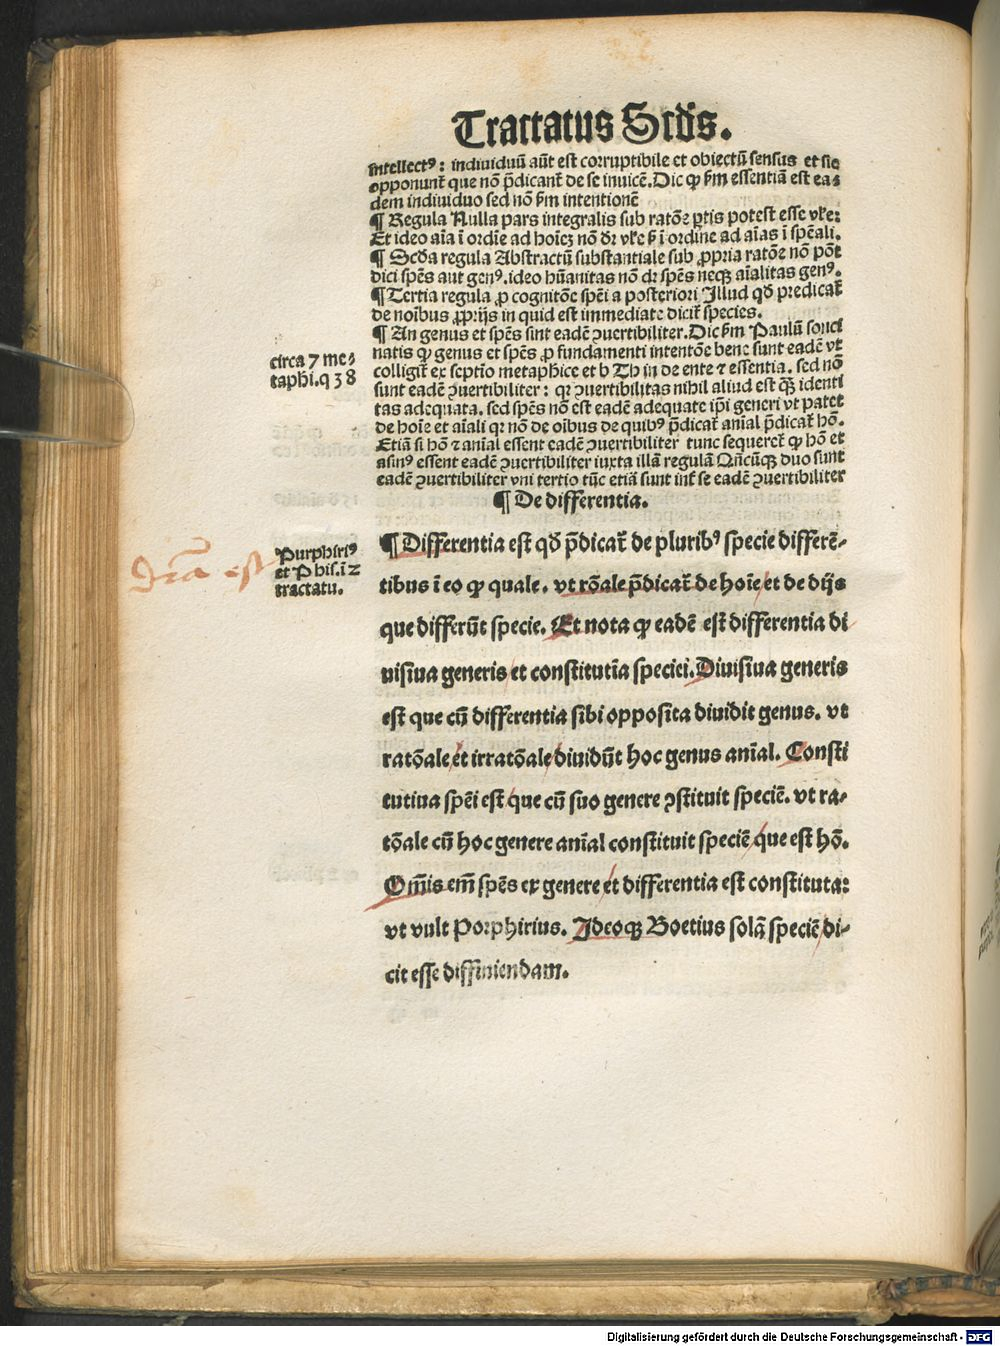 Tractatus Scd̄s.
intellectꝰ: indiuiduū aūt est corruptibile et obiectū sensus et sic
opponunt̄ que nō p̄dicant̄ de se inuicē. Dic ꝙ ẜm essentiā est ea⸗
dem indiuiduo sed nō ẜm intentionē
¶ Regula Nulla pars integralis sub ratōe ꝑtis potest esse vl̄e:
Et ideo aīa ī ordīe ad hoīeꝫ nō dr̄ vl̄e ẜ ī ordine ad aīas ī spēali.
¶ Scd̄a regula Abstractū substantiale sub ꝓpria ratōe nō pōt
dici spēs aut genꝰ. ideo hūanitas nō dr̄ spēs neqꝫ aīalitas genꝰ.
¶ Tertia regula ꝓ cognitōe spēi a posteriori Illud qd̄ predicat̄
de noībus ꝓprijs in quid est immediate dicit̄ species.
¶ An genus et spēs sint eadē ꝯuertibiliter. Dic ẜm Paulū soncī
natis ꝙ genus et spēs ꝓ fundamenti intentōe bene sunt eadē vt
colligit̄ ex septio metaphice et b Th in de ente ⁊ essentia. sed nō
sunt eadē ꝯuertibiliter: qr ꝯuertibilitas nihil aliud est qͣꝫ identi
tas adequata. sed spēs nō est eadē adequate ip̄i generi vt patet
de hoīe et aīali qr nō de oībus de quibꝰ p̄dicat̄ anīal p̄dicat̄ hō.
Etiā si hō ⁊ anīal essent eadē ꝯuertibiliter tunc sequeret̄ ꝙ hō et
asinꝰ essent eadē ꝯuertibiliter iuxta illā regulā Qn̄cūqꝫ duo sunt
eadē ꝯuertibiliter vni tertio tūc etiā sunt int̄ se eadē ꝯuertibiliter
circa 7 me⸗
taphi. q 38
¶ De differentia.
¶ Differentia est qd̄ p̄dicat̄ de pluribꝰ specie differē⸗
tibus ī eo ꝙ quale. vt rōale p̄dicat̄ de hoīe et de dijs
que differūt specie. Et nota ꝙ eadē est differentia di
uisiua generis et constitutīa speciei. Diuisiua generis
est que cū differentia sibi opposita diuidit genus. vt
ratōale et irratōale diuidūt hoc genus anīal. Consti
tutiua spēi est que cū suo genere ꝯstituit speciē. vt ra⸗
tōale cū hoc genere anīal constituit speciē que est hō.
Om̄is em̄ spēs ex genere et differentia est constituta:
vt vult Porphirius. Ideoqꝫ Boetius solā speciē di⸗
cit esse diffiniendam.
Purphiriꝰ
et Phis. ī 2
tractatu.
Dr̄ia est
Digitalisierung gefördert durch die Deutsche Forschungsgemeinschaft - DFG